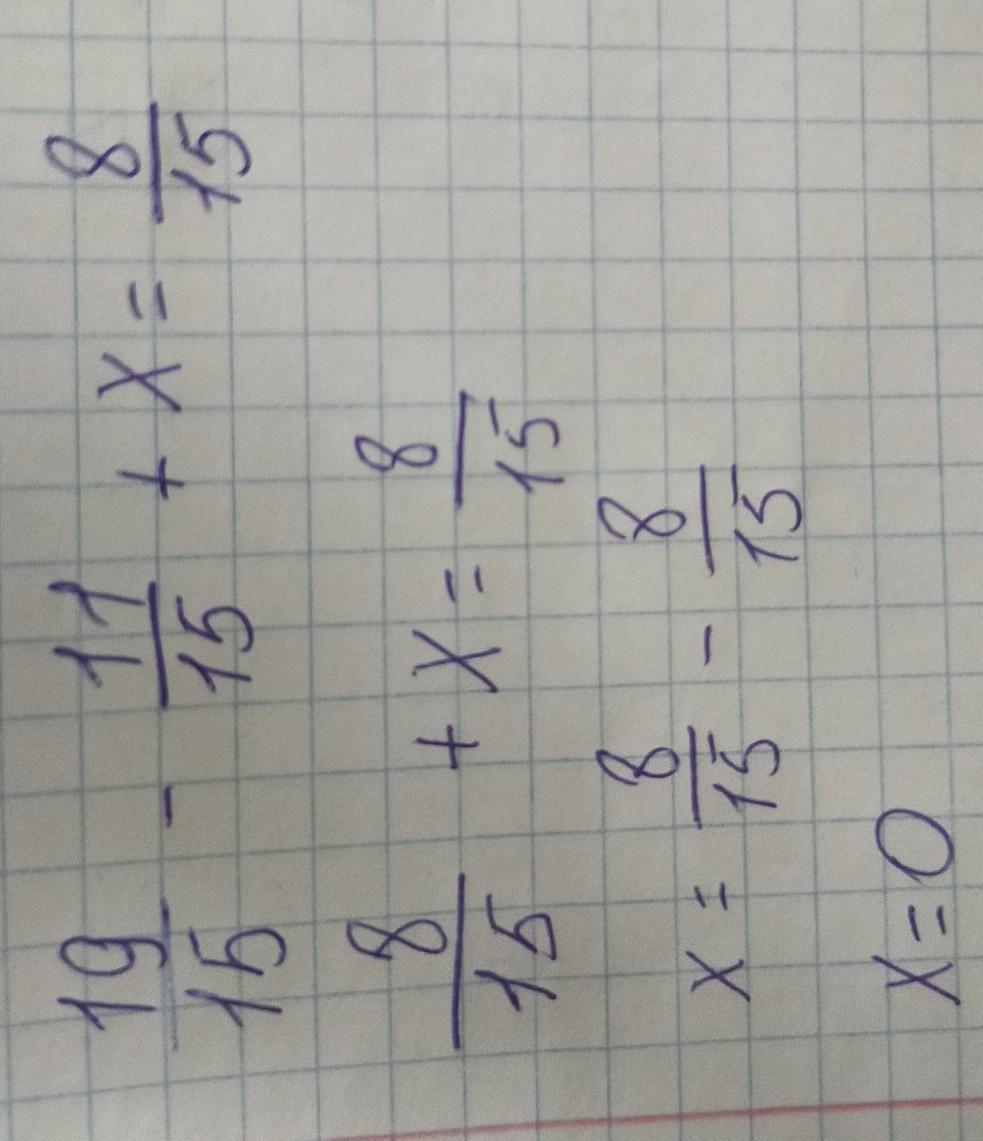 19/15 - 11/15 + x = 8/15
8/15 + x = 8/15
x = 8/15 - 8/15
x = 0